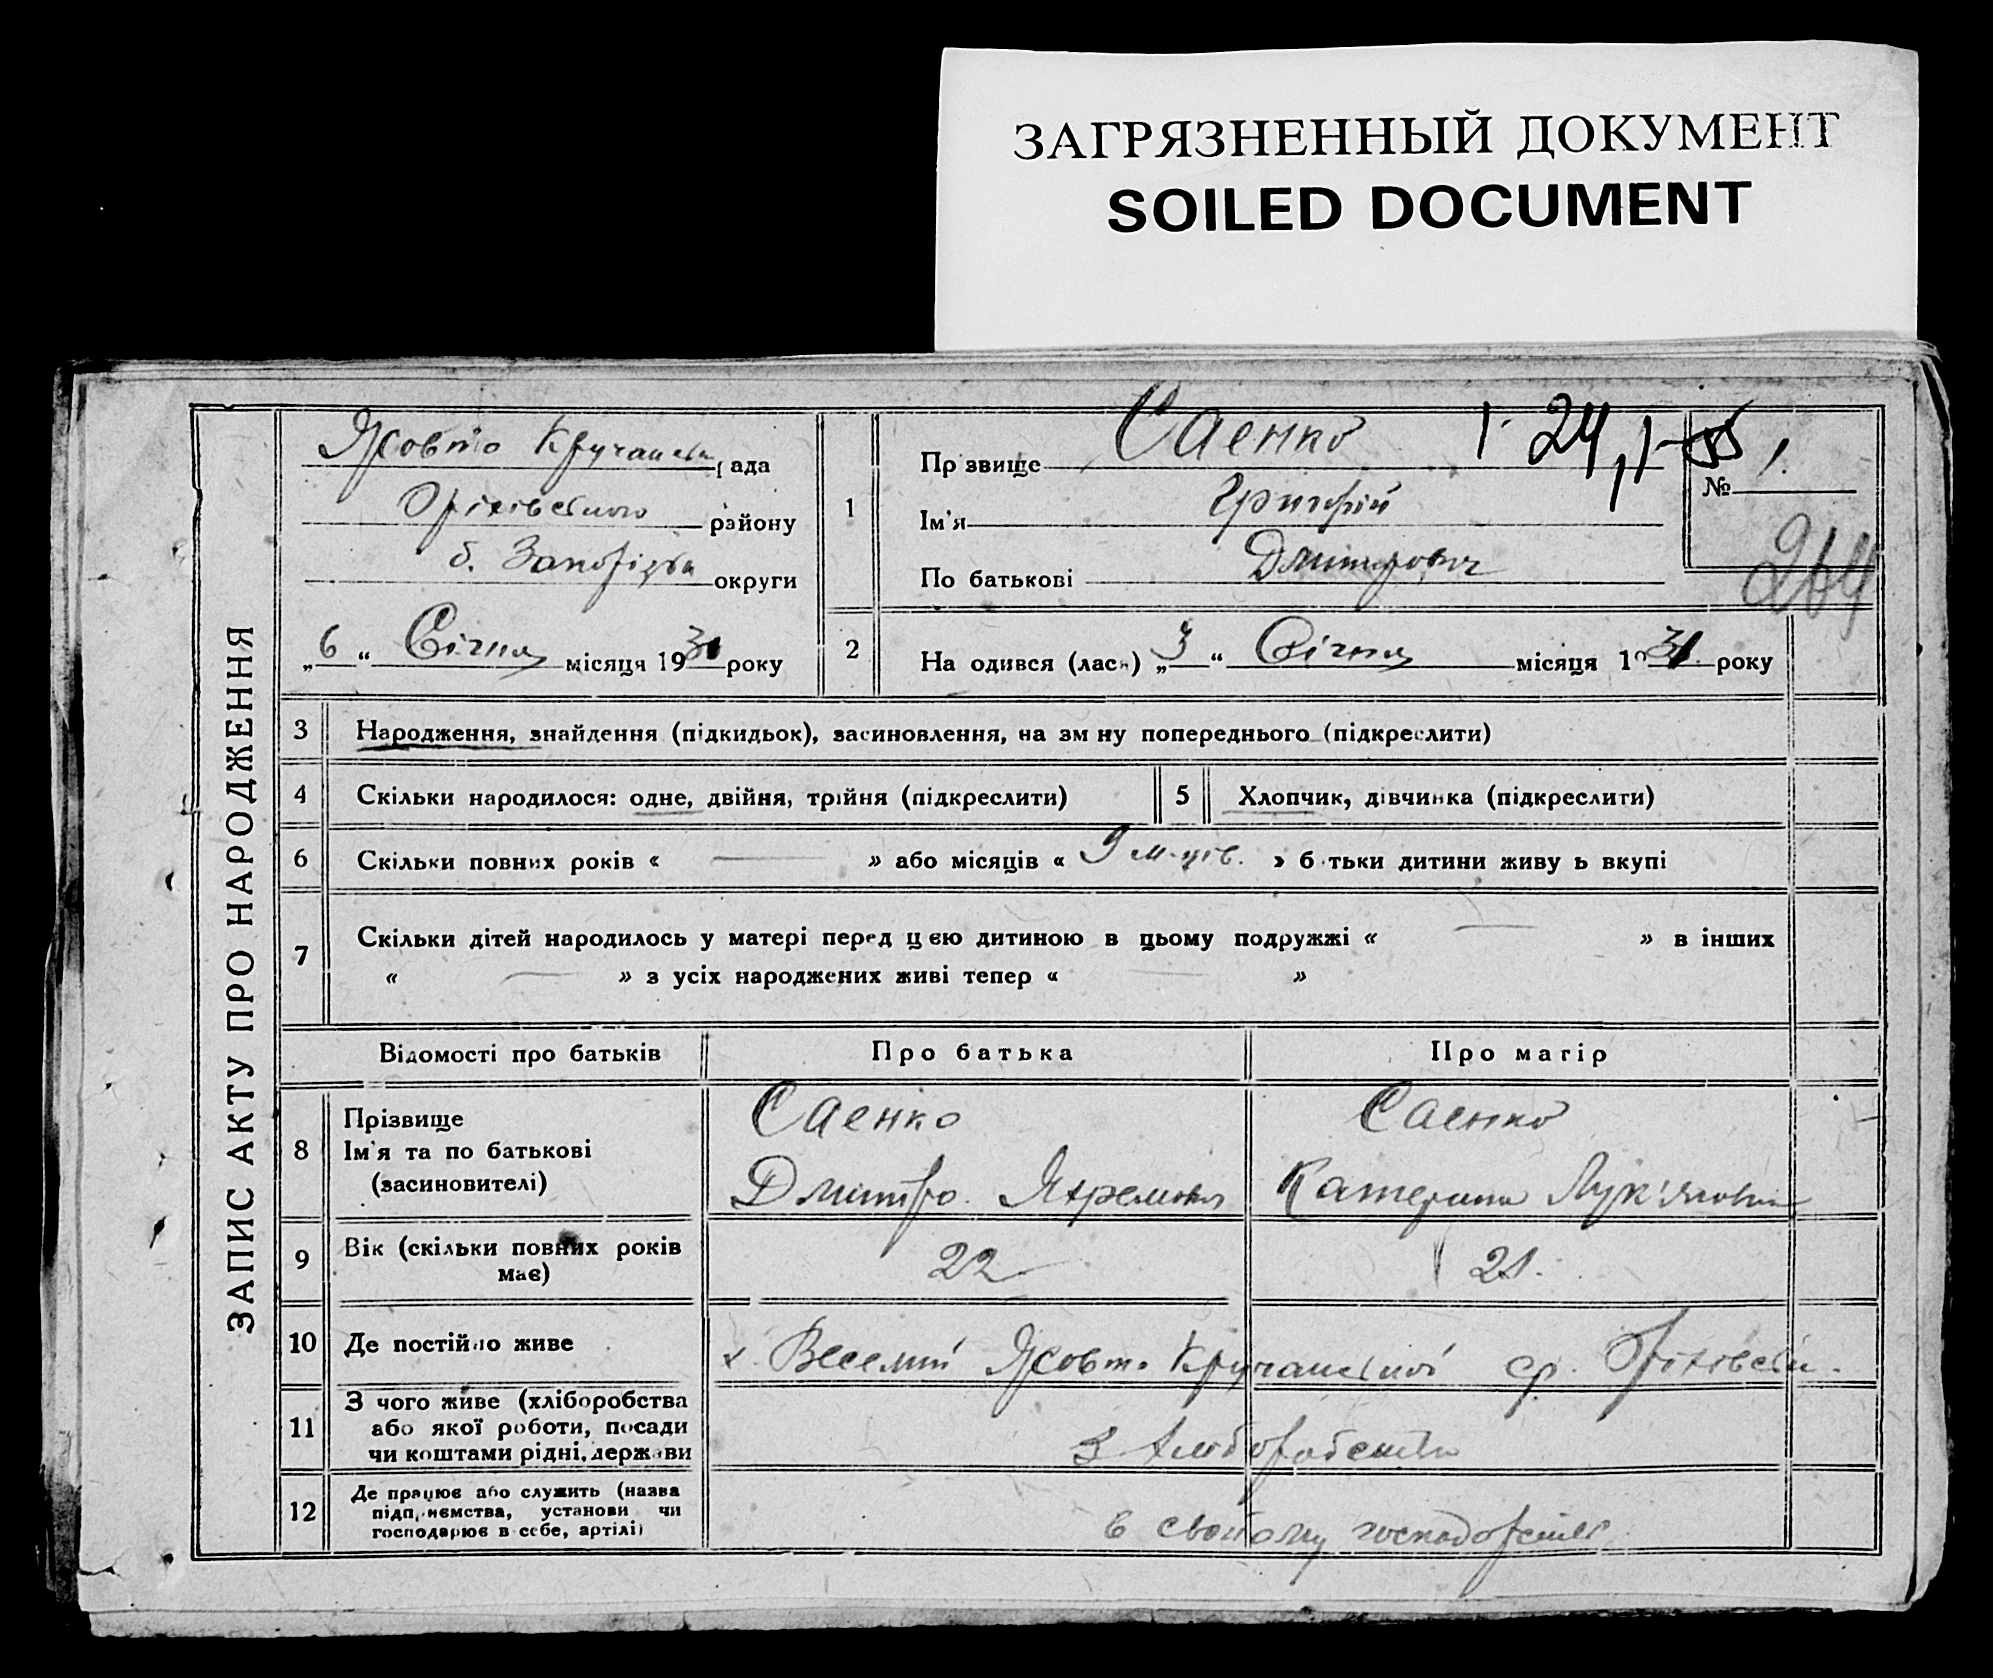 ЗАГРЯЗНЕННЫЙ ДОКУМЕНТ
SOILED DOCUMENT
ЗАПИС АКТУ ПРО НАРОДЖЕННЯ
Жовто Кручанськ рада
Оріхівського району
б. Запоріжськ округи
„6“ Січня місяця 1931 року
1
Прізвище Саенко
Ім'я Григорій
По батькові Дмитрович
№ 1.
264
2 На одився (лась) „3“ Січня місяця 1931 року
3 Народження, знайдення (підкидьок), засиновлення, на зм ну попереднього (підкреслити)
4 Скільки народилося: одне, двійня, трійня (підкреслити) 5 Хлопчик, дівчинка (підкреслити)
6 Скільки повних років « — » або місяців « 9 м-ців. » б тьки дитини живу ь вкупі
7 Скільки дітей народилось у матері перед цією дитиною в цьому подружжі « — » в інших
« — » з усіх народжених живі тепер « — »
Відомості про батьків Про батька Про матір
8 Прізвище
Ім'я та по батькові
(засиновителі)
Саенко Саенко
Дмитро Яхремович Катерина Лук'яновна
9 Вік (скільки повних років
має)
22 21.
10 Де постійно живе
х. Веселий Жовто Кручанської ср. Оріхівськ.
11 З чого живе (хліборобства
або якої роботи, посади
чи коштами рідні, держави
З хліборобства
12 Де працює або служить (назва
підприємства, установи чи
господарює в себе, артілі)
в свойому господорстві